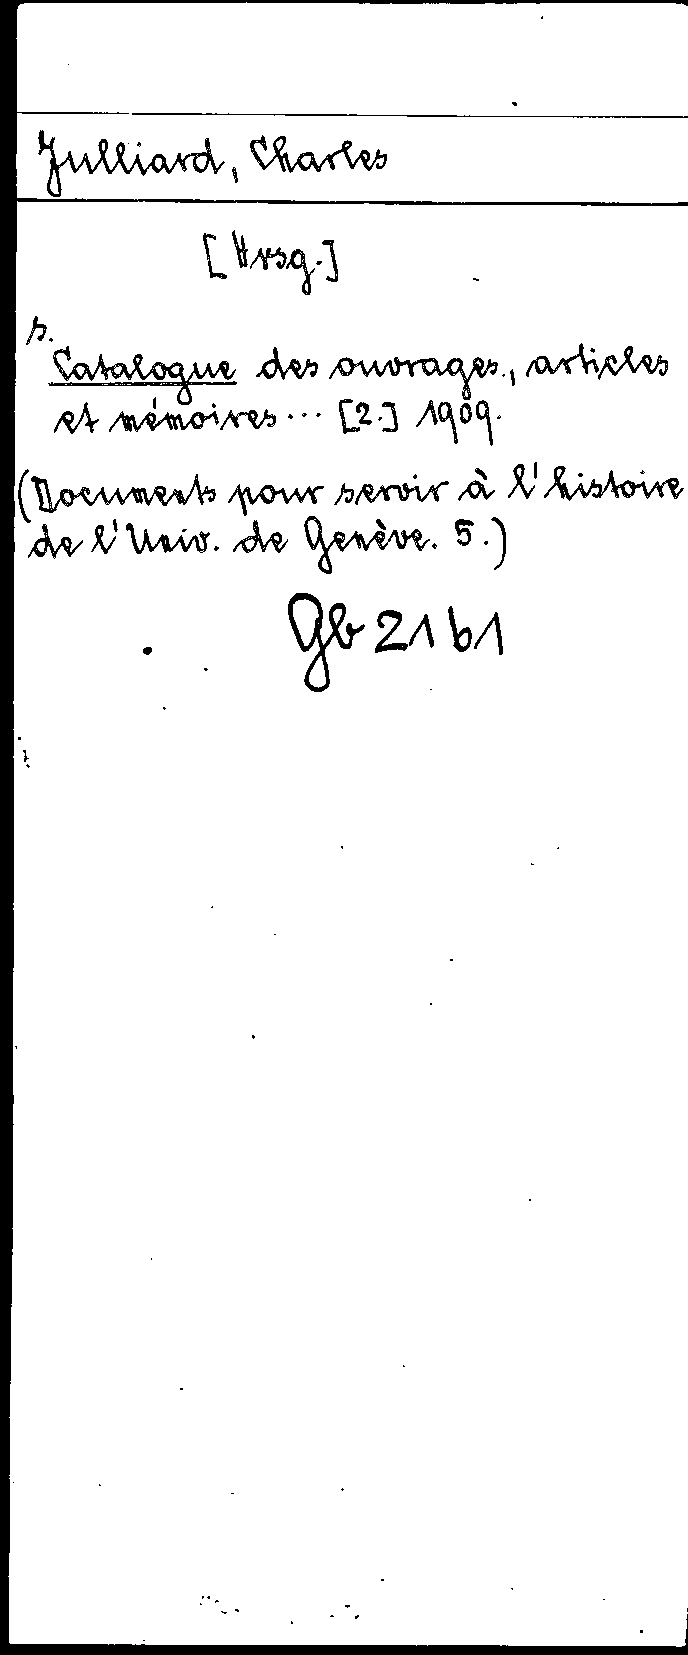 Julliard, Charles
[Hrsg.]
s.
Catalogue des ouvrages, articles
et mémoires... [2.] 1909.
(Documents pour servir à l'histoire
de l'Univ. de Genève. 5.)
Gb 21 b1